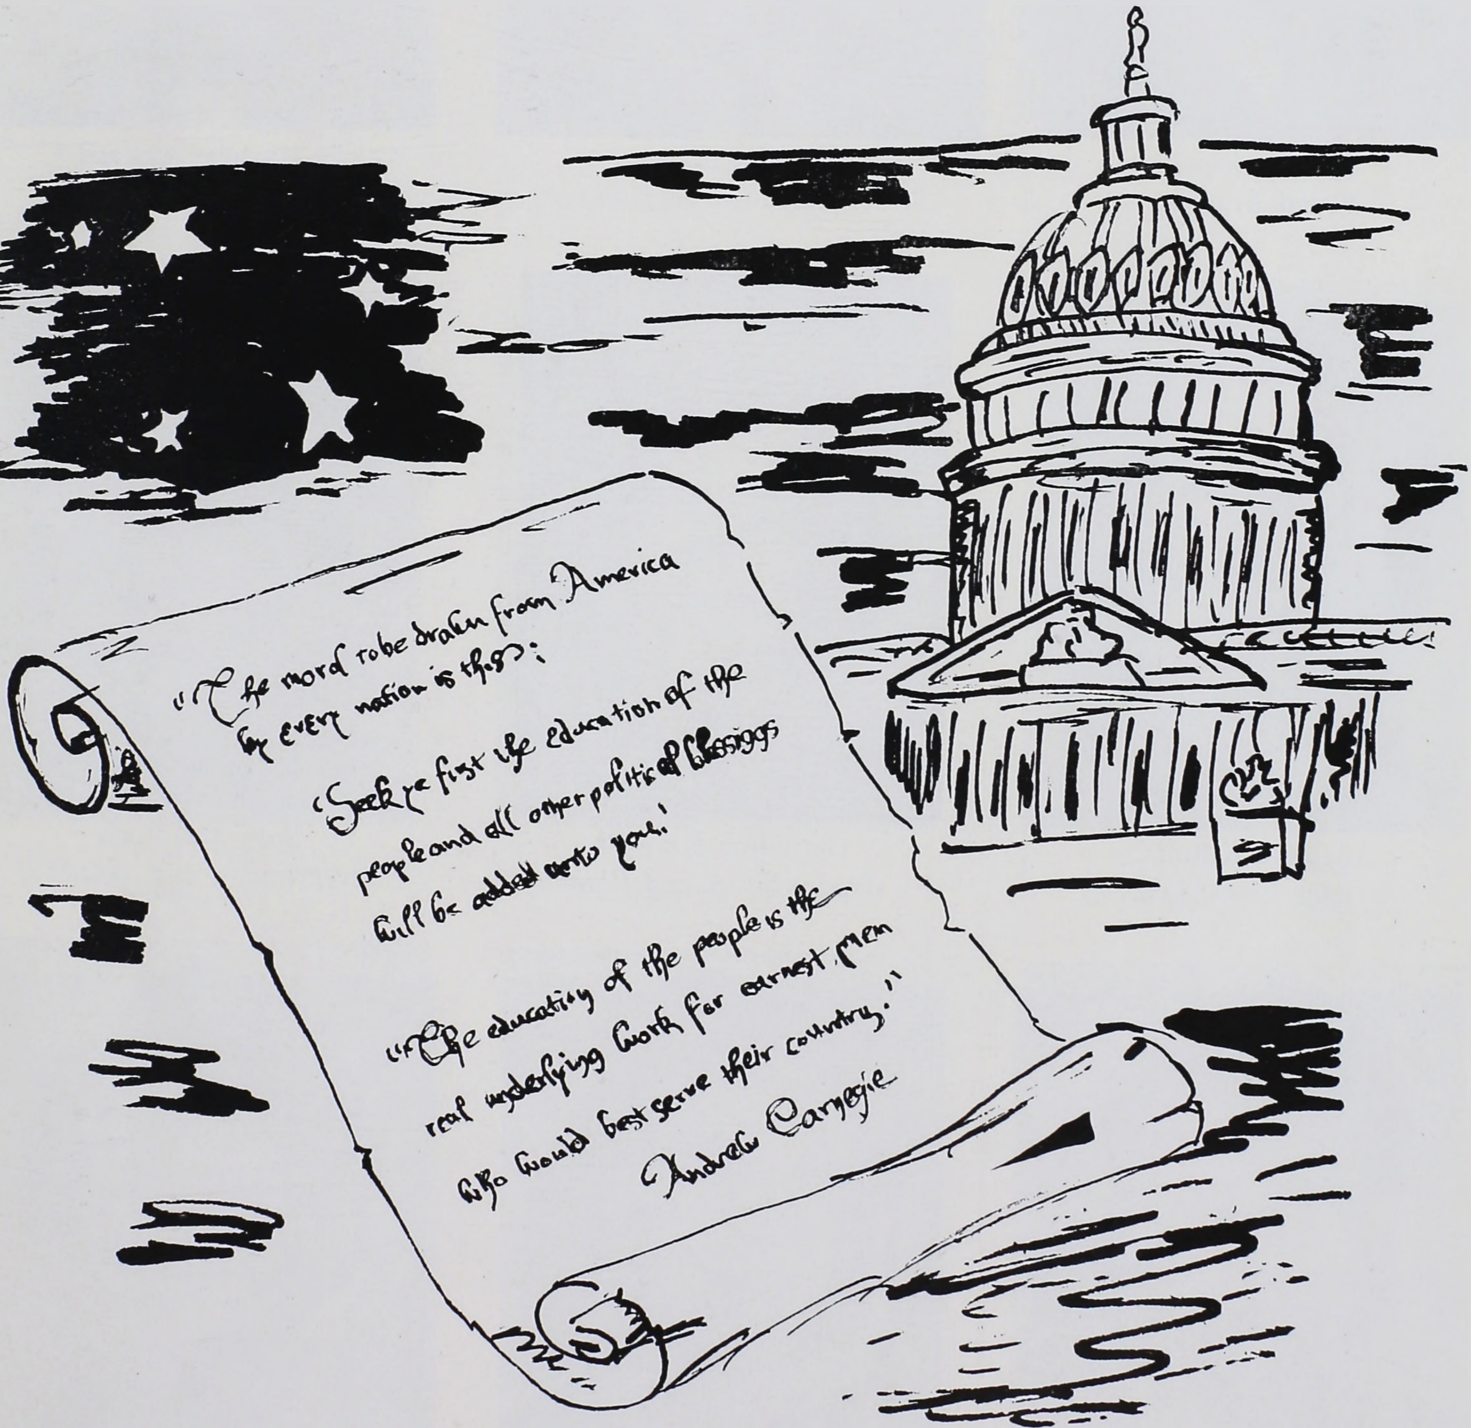 "The moral to be drawn from America
by every nation is this:
'Seek ye first the education of the
people and all other political blessings
will be added unto you.'
"The education of the people is the
real underlying work for earnest men
who would best serve their country."
Andrew Carnegie